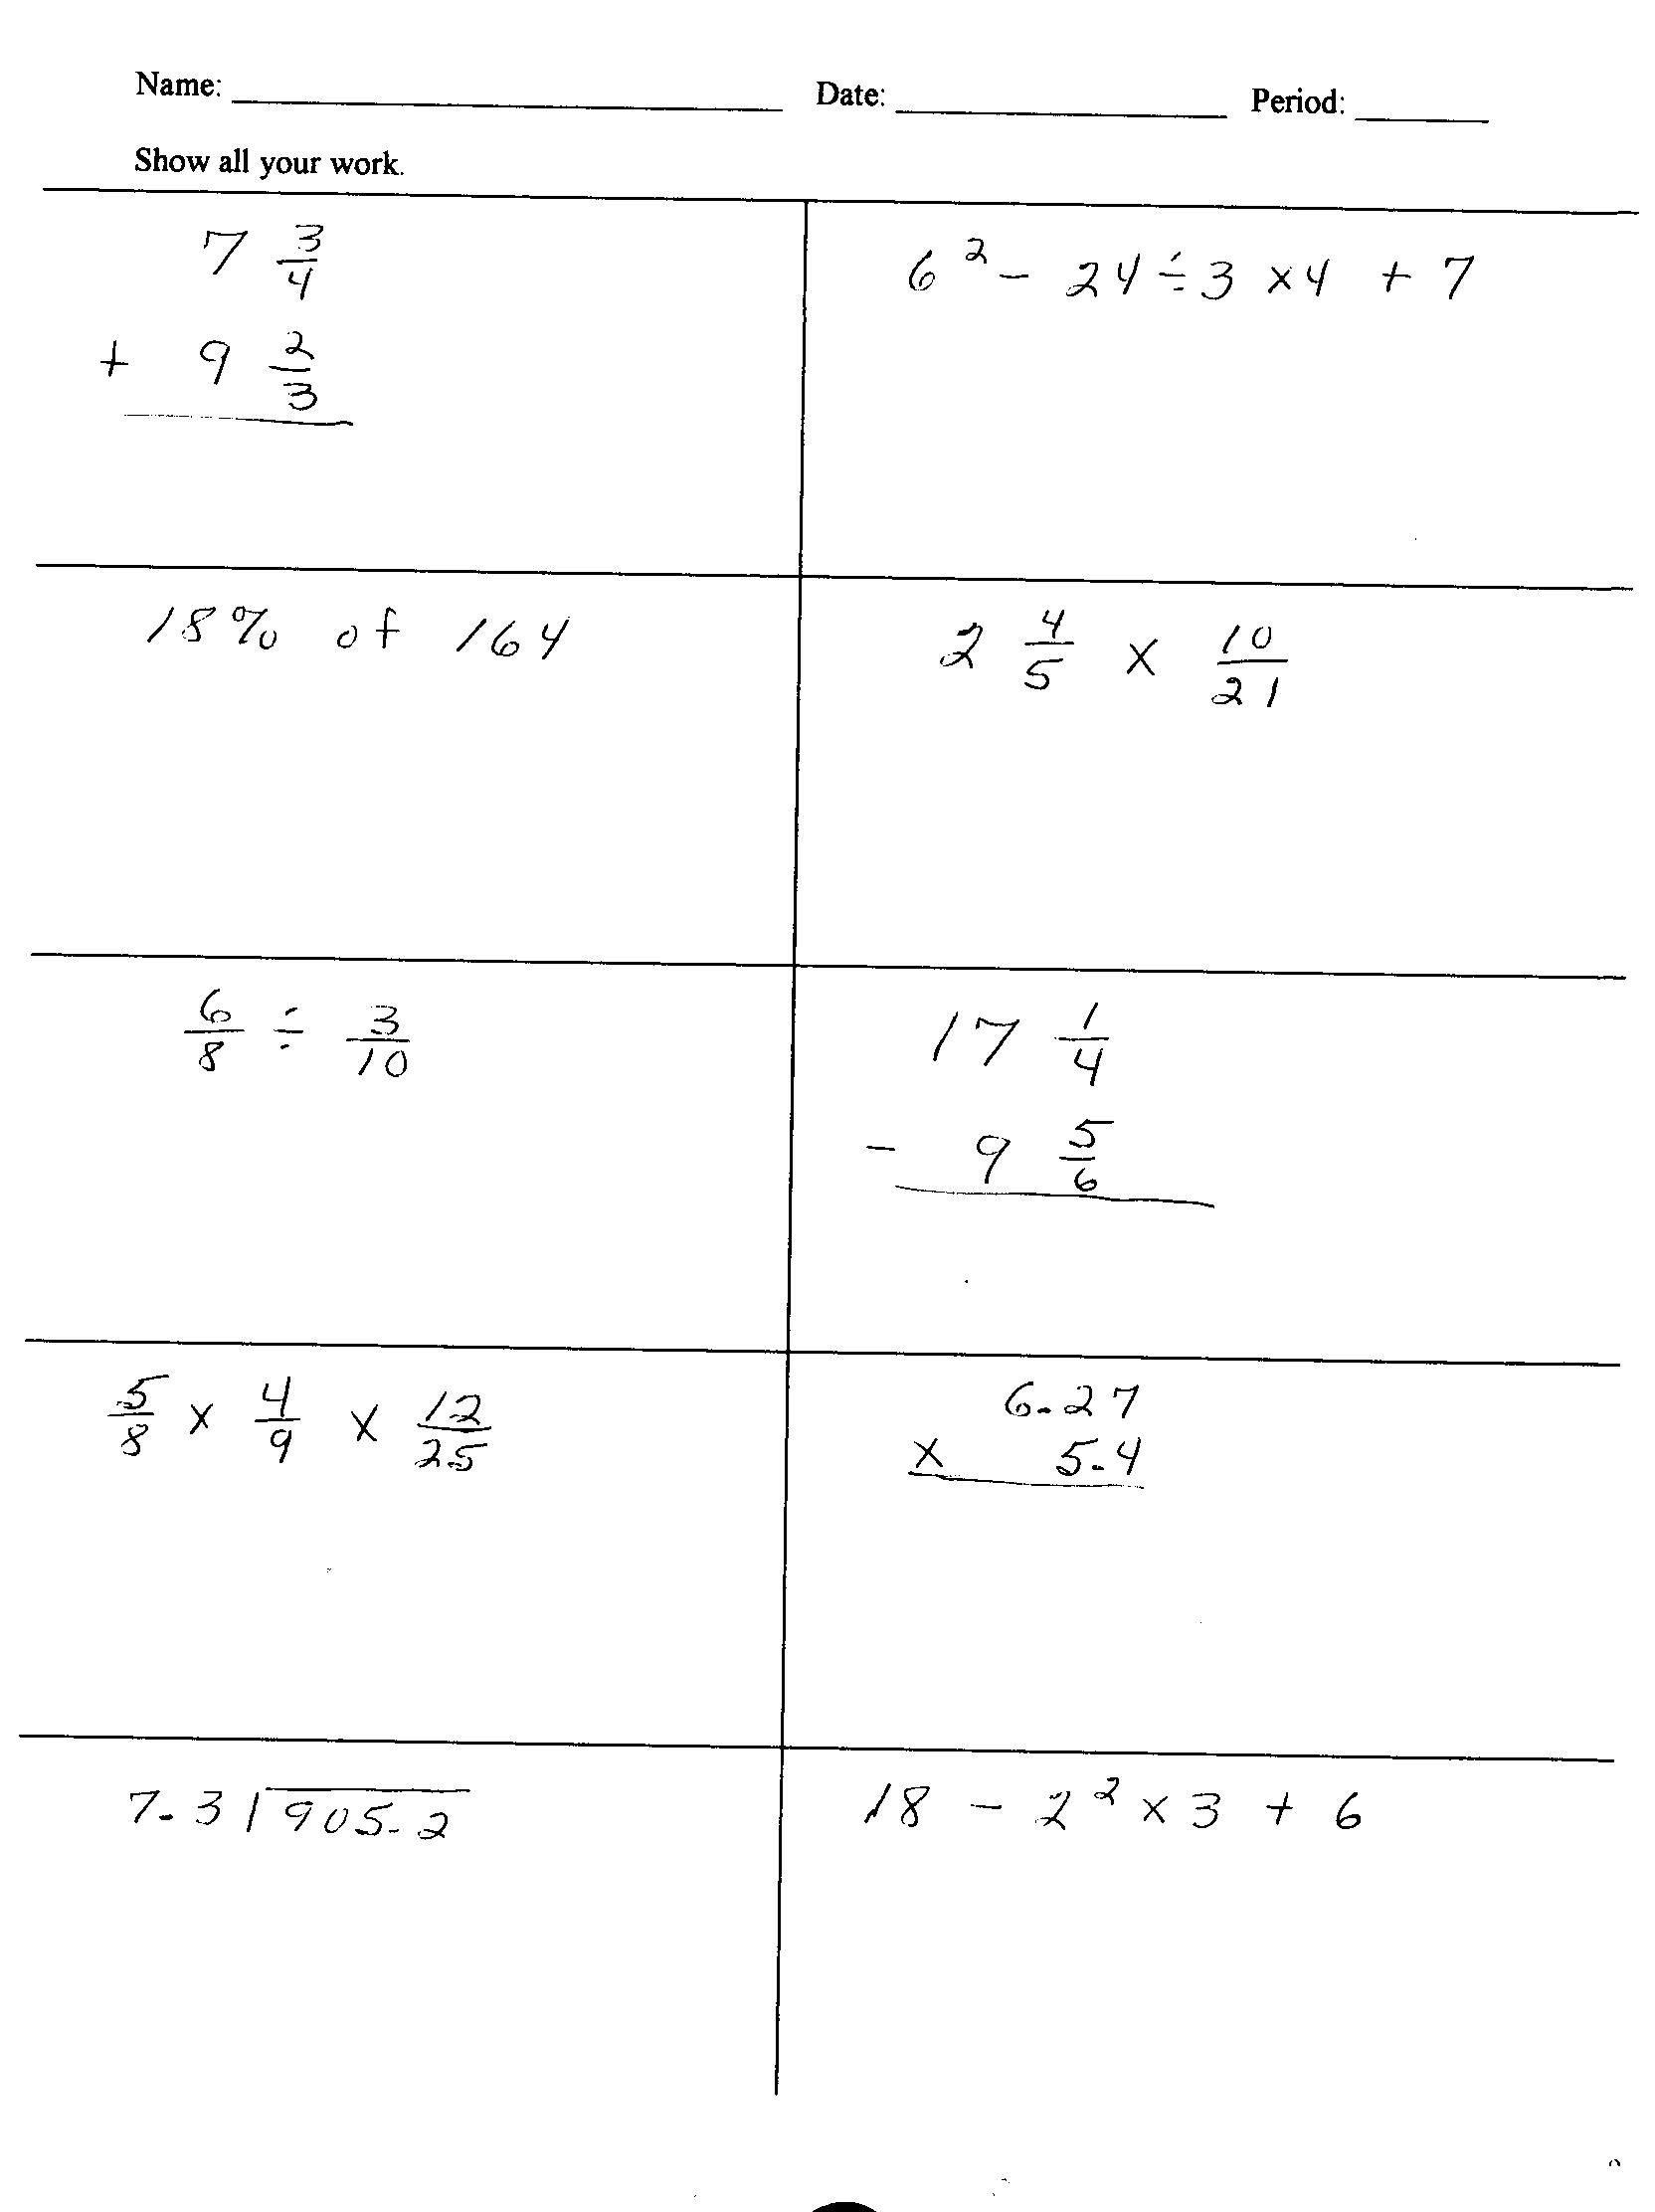 Name: ____ Date: ____ Period: ____
Show all your work.
7 3/4
+ 9 2/3
6² - 24 ÷ 3 × 4 + 7
18% of 164
2 4/5 × 10/21
6/8 ÷ 3/10
17 1/4
- 9 5/6
5/8 × 4/9 × 12/25
6.27
× 5.4
7.3 | 905.2
18 - 2² × 3 + 6